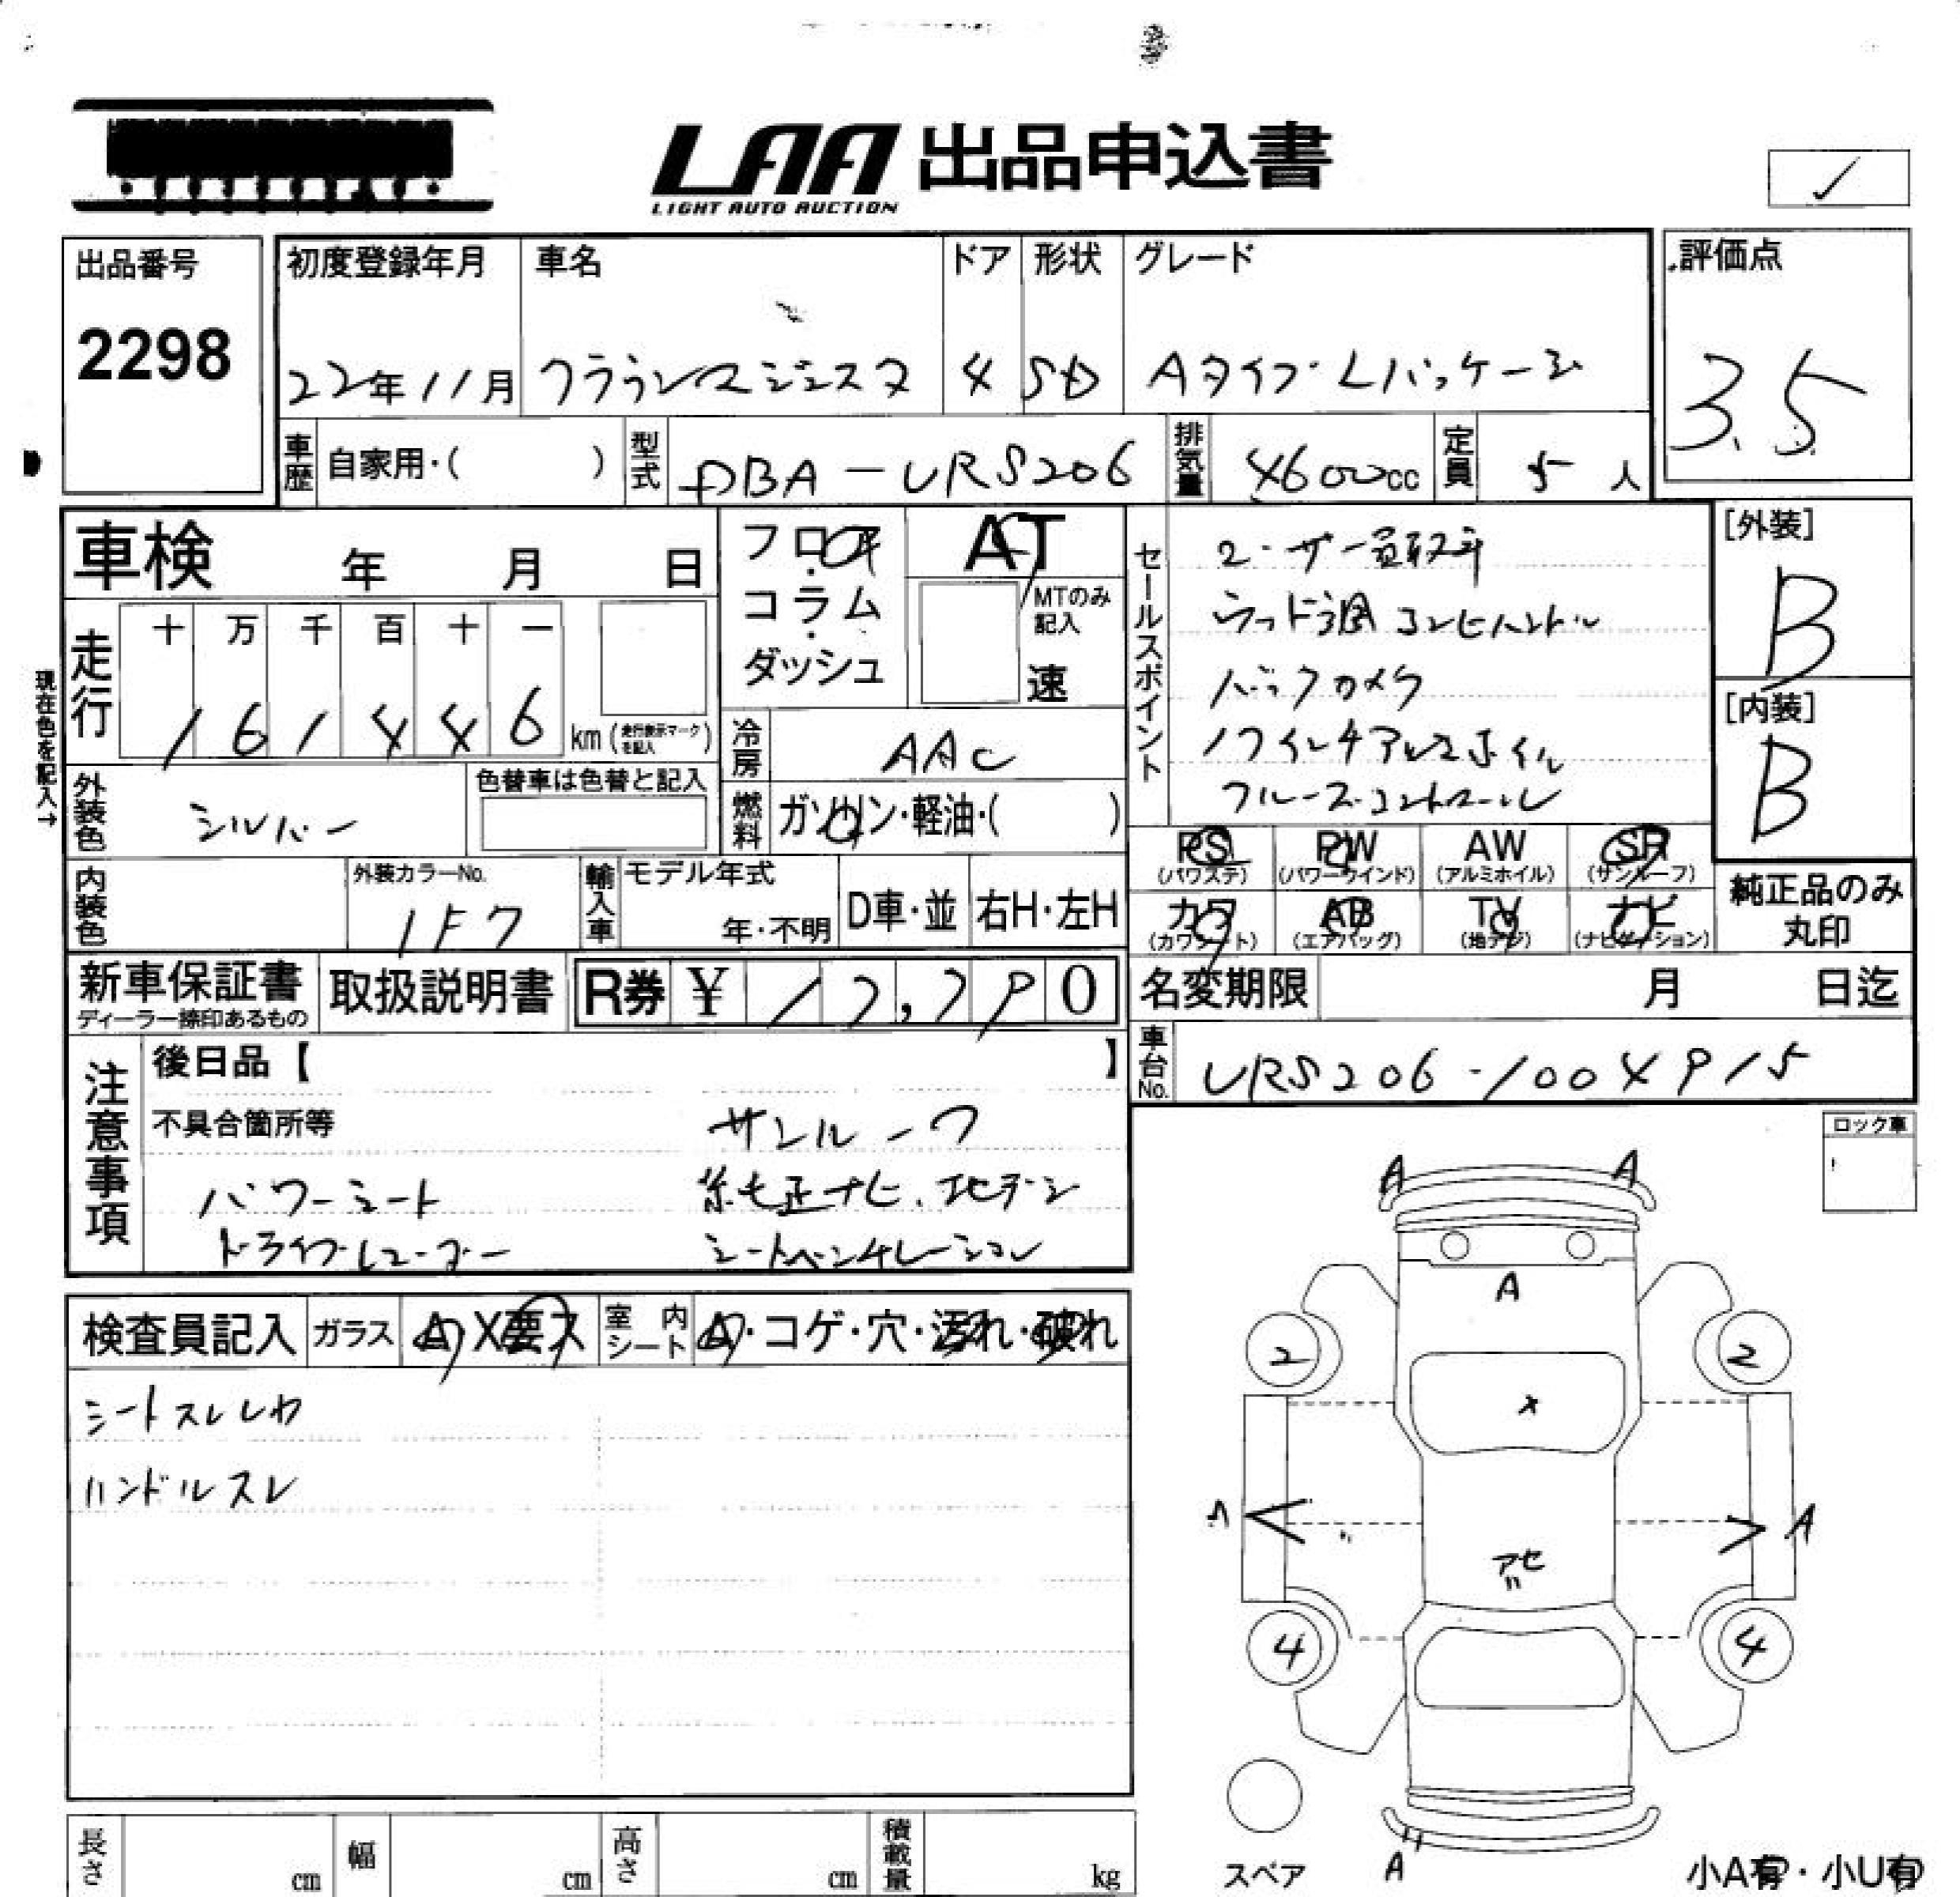 LAA 出品申込書
LIGHT AUTO AUCTION
✓
出品番号
2298
初度登録年月 車名 ドア 形状 グレード
22年11月 クラウンマジェスタ 4 SD Aタイプ Lパッケージ
評価点
3.5
車歴 自家用・( ) 型式 DBA-URS206 排気量 4600cc 定員 5人
車検 年 月 日
フロア・コラム・ダッシュ
AT
MTのみ記入
速
走行
十 万 千 百 十 一
1 6 1 4 4 6 km (走行表示マークを記入)
現在色を記入→
外装色 シルバー
色替車は色替と記入
冷房 AAC
燃料 ガソリン・軽油・( )
内装色
外装カラーNo.
1F7
輸入車 モデル年式
年・不明
D車・並 右H・左H
セールスポイント
ユーザー買取車
ウッド調コンビハンドル
バックカメラ
17インチアルミホイル
クルーズコントロール
[外装]
B
[内装]
B
PS (パワステ) PW (パワーウインド) AW (アルミホイル) SR (サンルーフ)
カワ (カワシート) AB (エアバッグ) TV (地デジ) ナビ (ナビゲーション)
純正品のみ丸印
新車保証書
ディーラー捺印あるもの
取扱説明書
R券 ¥ 12,790
名変期限 月 日迄
車台No. URS206-1004915
注意事項
後日品【 】
不具合箇所等
サンルーフ
パワーシート 純正ナビ、地デジ
ドライブレコーダー シートベンチレーション
ロック車
検査員記入 ガラス A・X要ス 室内シート A・コゲ・穴・汚れ・破れ
シートスレシワ
ハンドルスレ
A A
A
2 2
X
A
アセ
4 4
A
スペア
小A有・小U有
長さ cm 幅 cm 高さ cm 積載量 kg